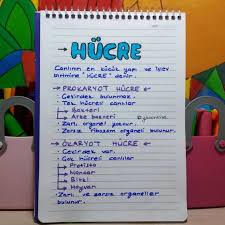 HÜCRE
Canlının en küçük yapı ve işlev
birimine "HÜCRE" denir.
PROKARYOT HÜCRE
Çekirdek bulunmaz.
Tek hücreli canlılar
Bakteri
Arke
Zarlı organel yoktur.
Zarsız ribozom organeli bulunur.
ÖKARYOT HÜCRE
Çekirdek var.
Çok hücreli canlılar
Protista
Mantar
Bitki
Hayvan
Zarlı ve zarsız organeller
bulunur.